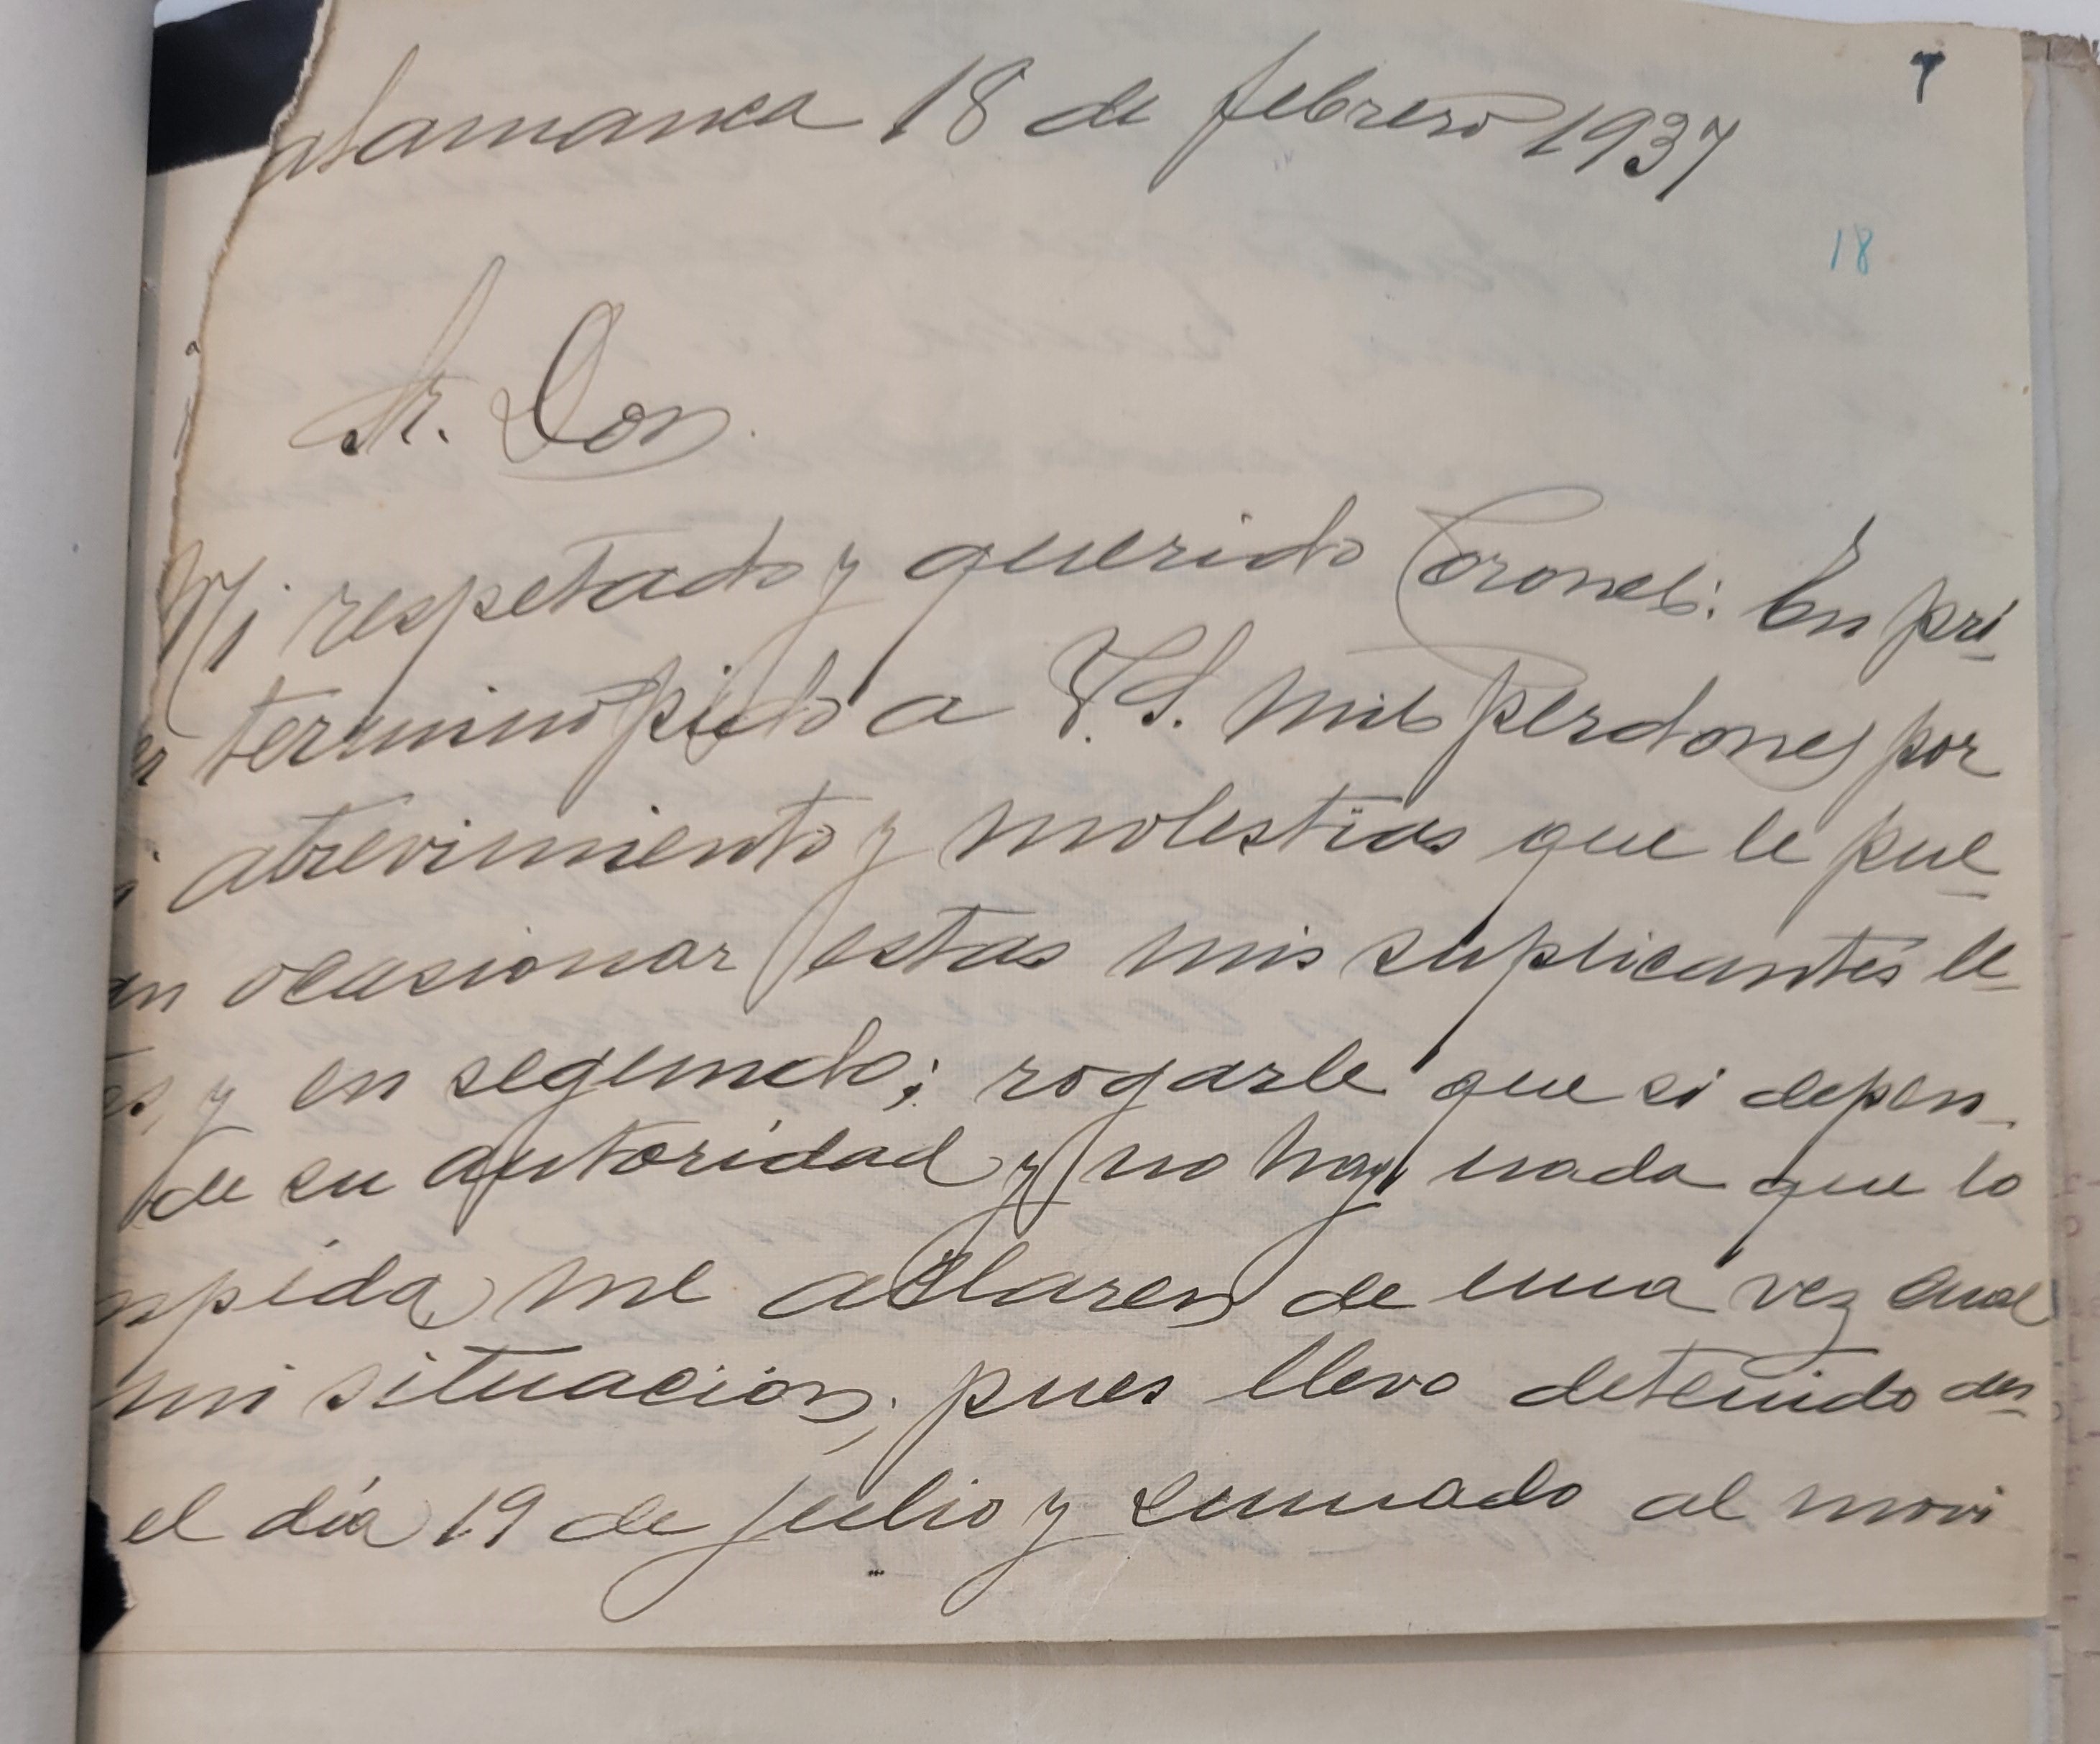 7
alamanca 18 de febrero 1937
18
Sr. Don
Mi respetado y querido Coronel: En pri-
er termino pido a V.S. mil perdones por
atrevimiento y molestias que le pue-
an ocasionar estas mis suplicantes le-
es, y en segundo; rogarle que si depen-
de su autoridad y no hay nada que lo
mpida, me aclaren de una vez cual
mi situacion; pues llevo detenido des-
el día 19 de julio y sumado al movi